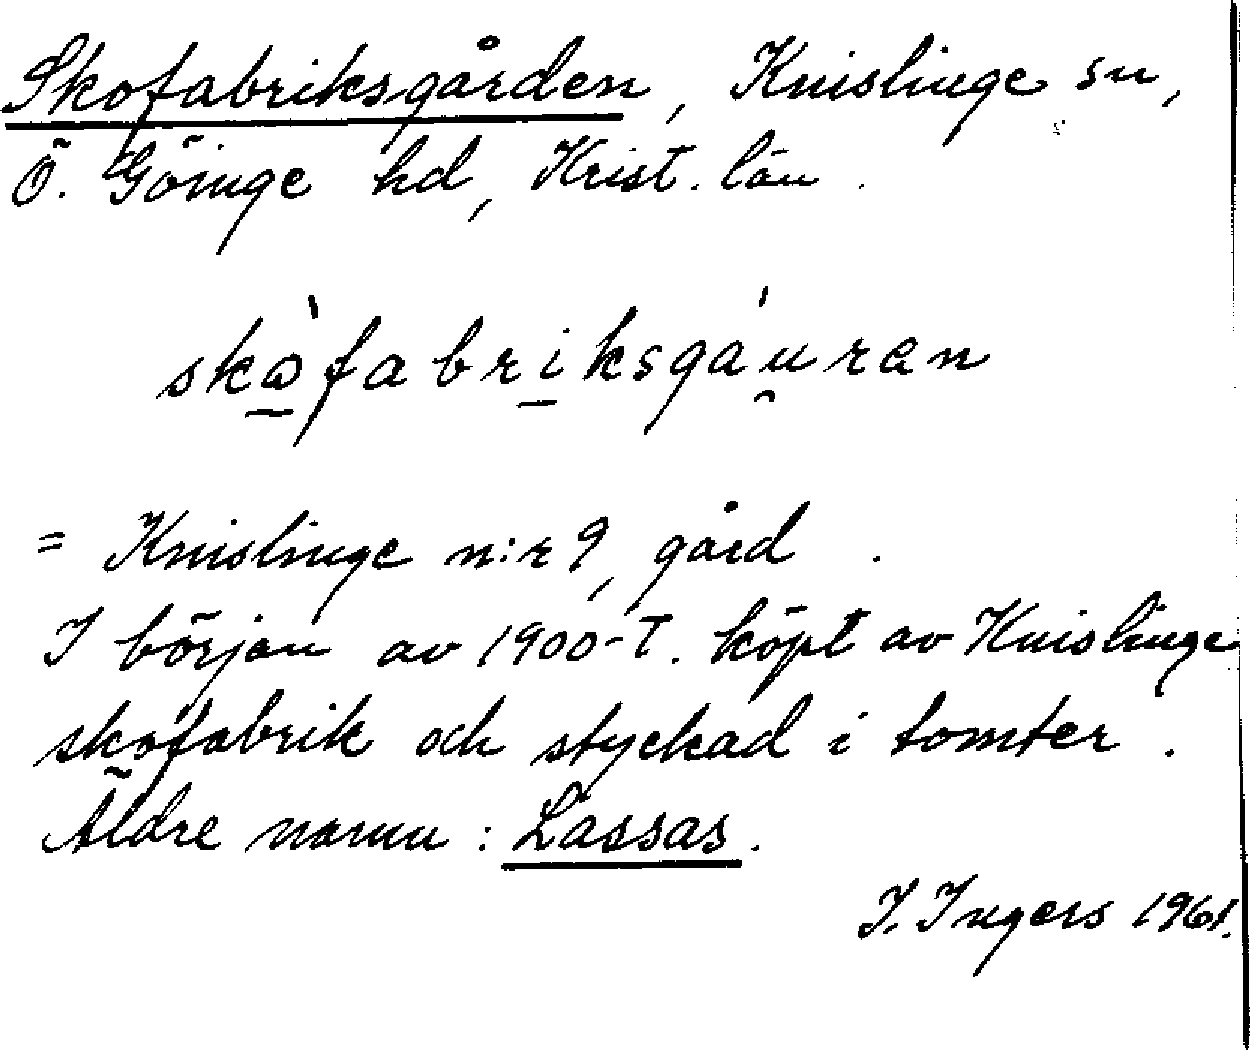 Skofabriksgården, Knislinge sn,
Ö. Göinge hd, Krist. län.
skò̱fabri̱ksgáu̯ran
= Knislinge n:r 9, gård.
I början av 1900-t. köpt av Knislinge
skofabrik och styckad i tomter.
Äldre namn: Lassas.
I. Ingers 1961.